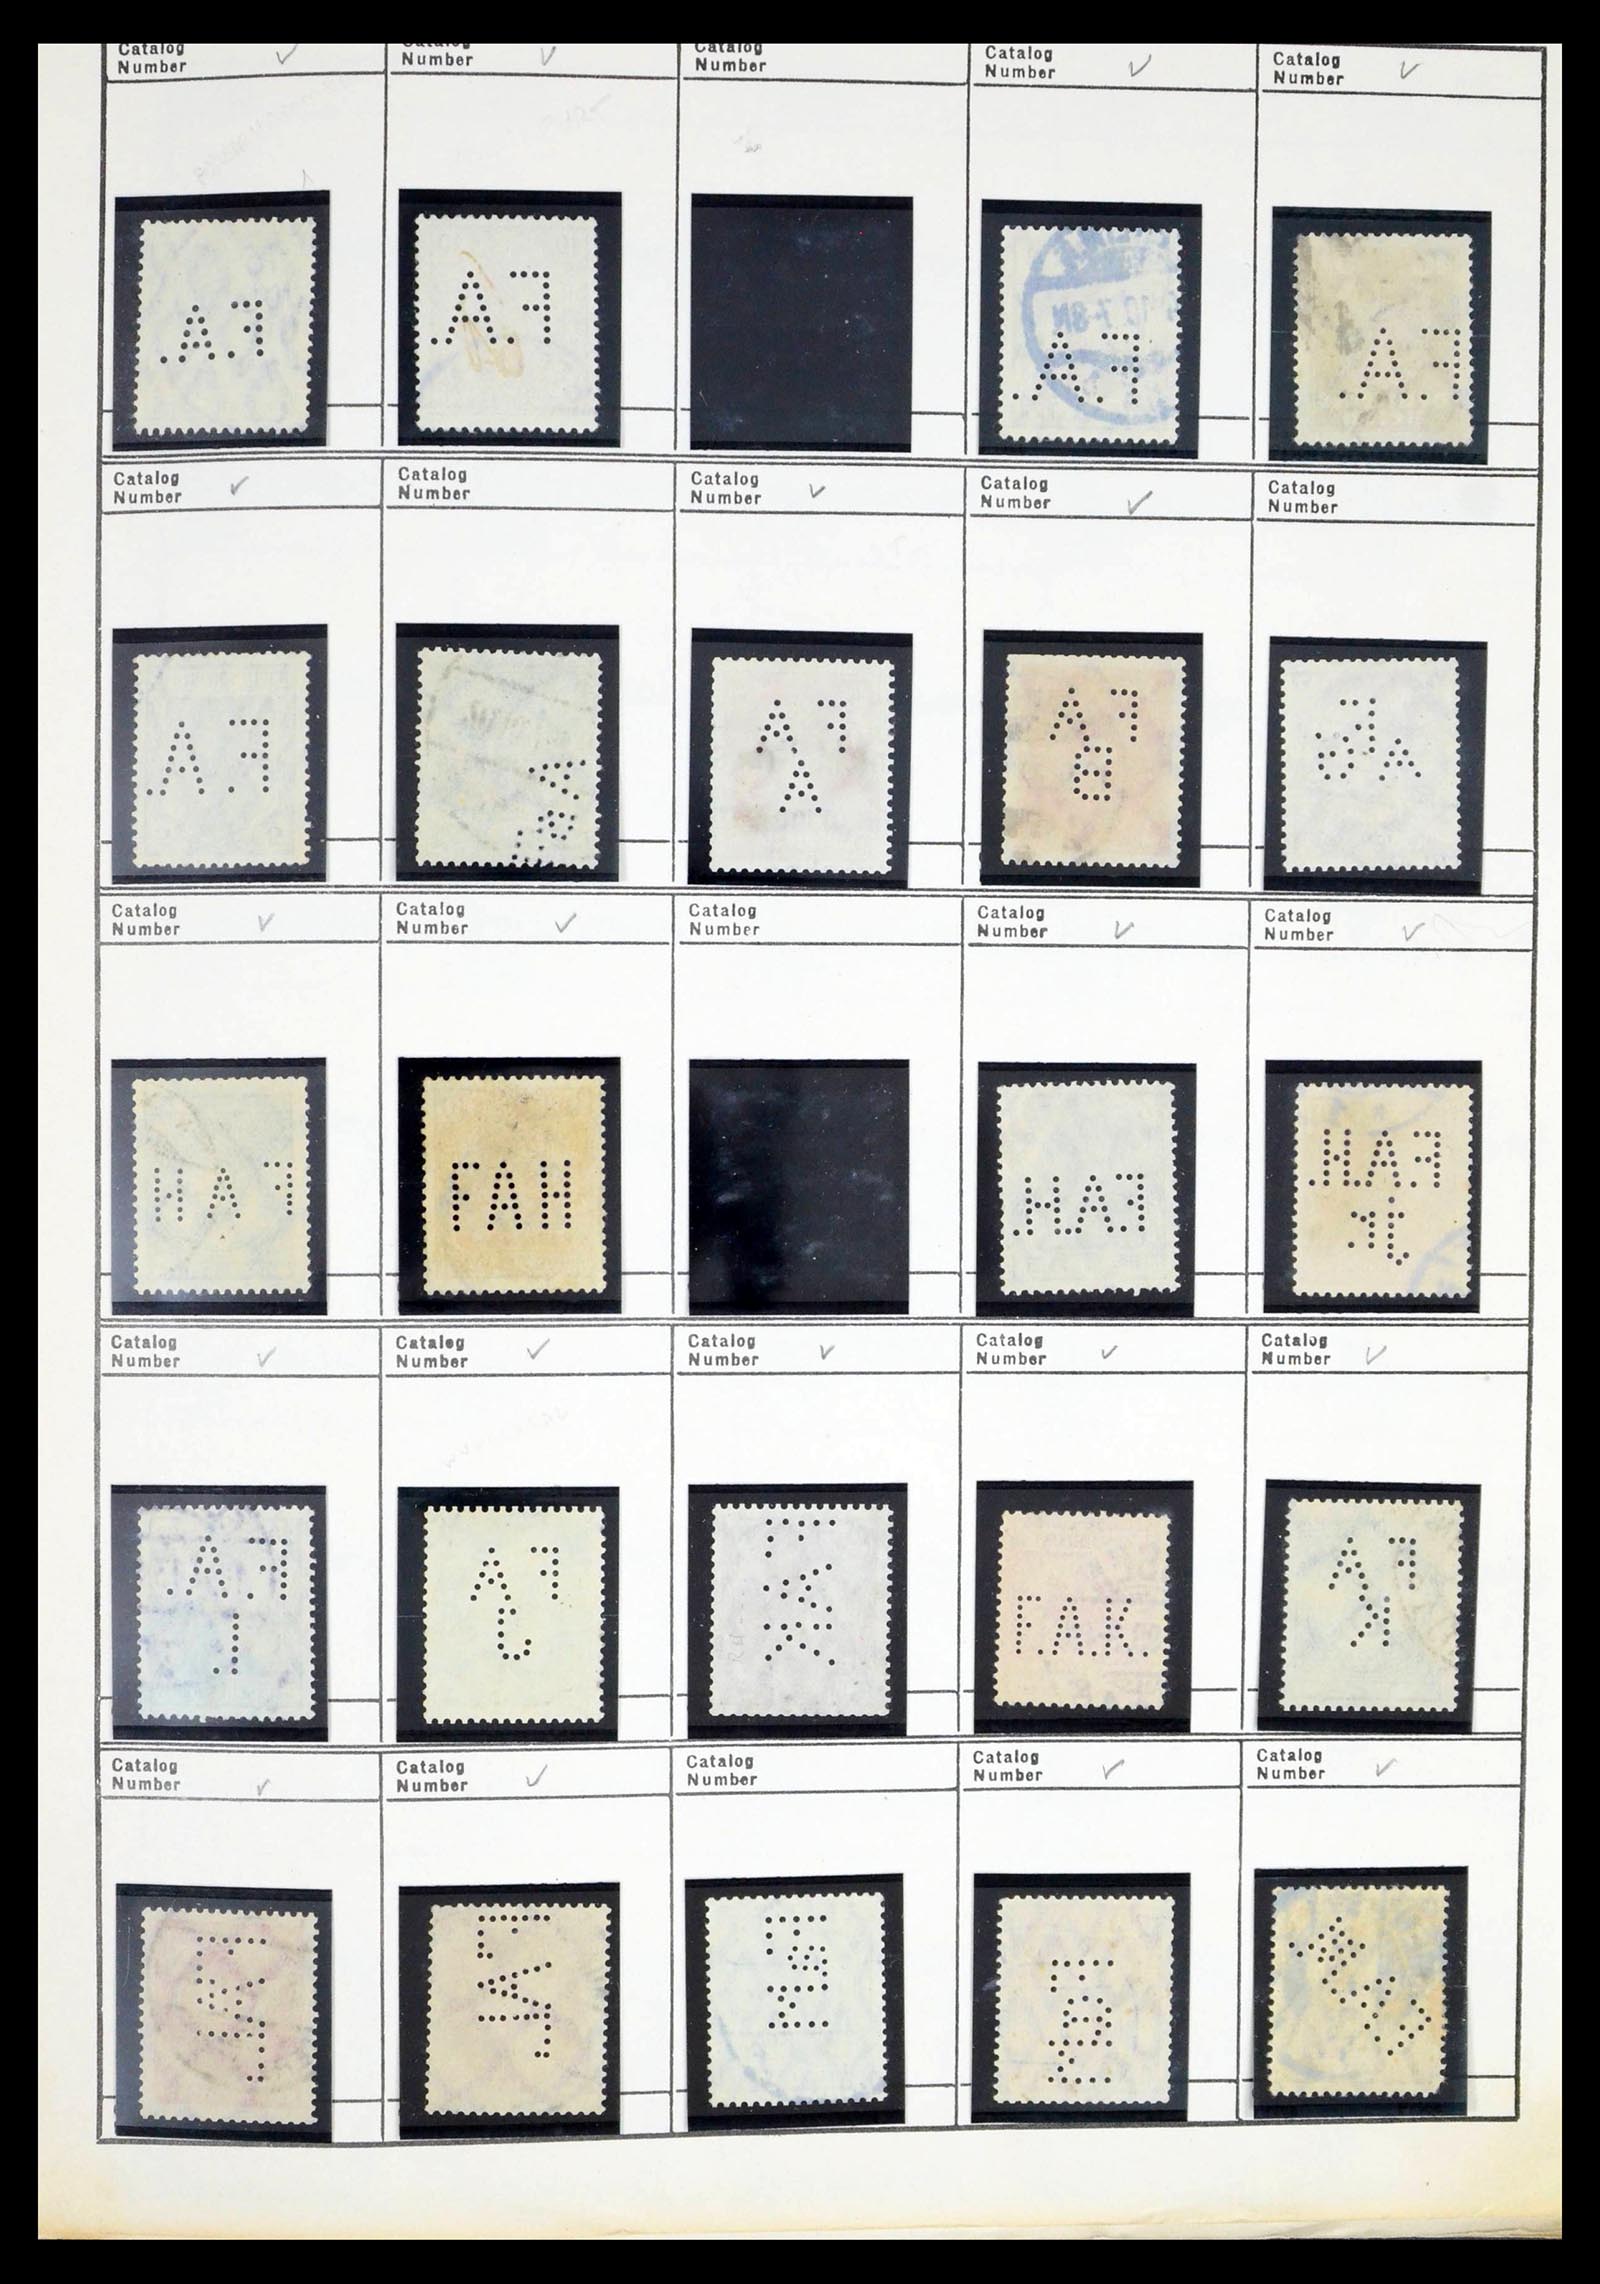 Catalog Number ✓ Catalog Number ✓ Catalog Number Catalog Number ✓ Catalog Number ✓
F.A. F.A. F.A. F.A.
Catalog Number ✓ Catalog Number Catalog Number ✓ Catalog Number ✓ Catalog Number
F.A. FA A FA B
Catalog Number ✓ Catalog Number ✓ Catalog Number Catalog Number ✓ Catalog Number ✓
FAH FAH F.A.H. F.A.H.
Catalog Number ✓ Catalog Number ✓ Catalog Number ✓ Catalog Number ✓ Catalog Number ✓
F.A. FA J FAK F.A.K. FA K
Catalog Number ✓ Catalog Number ✓ Catalog Number Catalog Number ✓ Catalog Number ✓